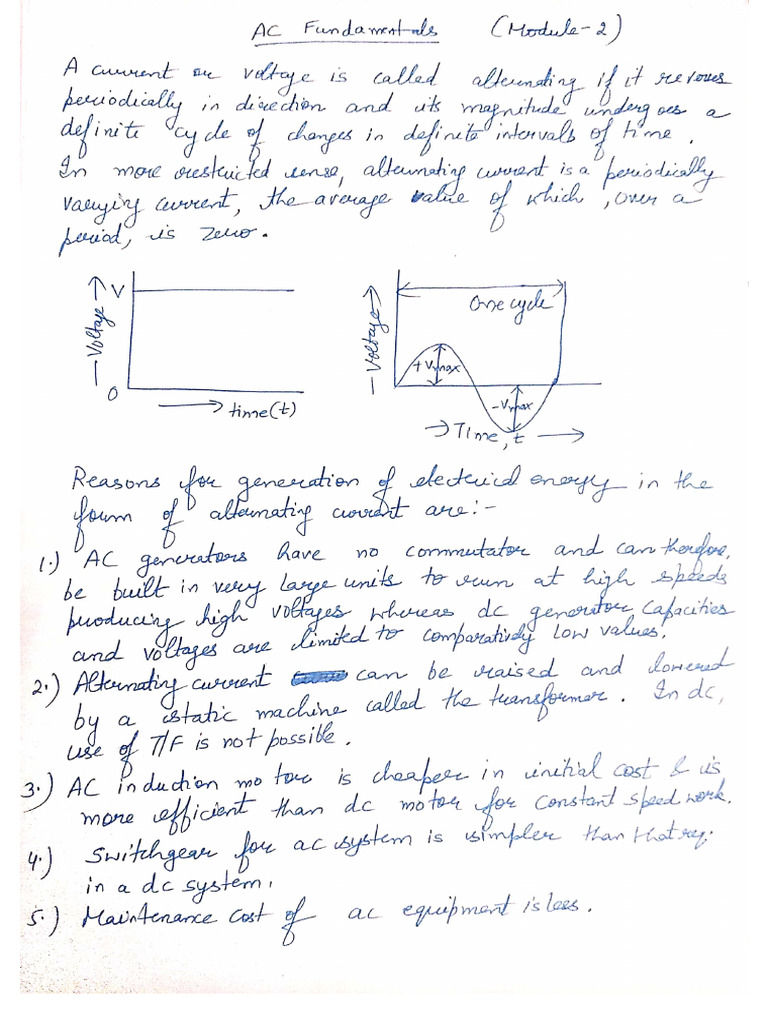 AC Fundamentals (Module-2)
A current or voltage is called alternating if it reverses
periodically in direction and its magnitude undergoes a
definite cycle of changes in definite intervals of time.
In more restricted sense, alternating current is a periodically
varying current, the average value of which, over a
period, is zero.
V
Voltage
0
time(t)
Voltage
One cycle
+Vmax
-Vmax
Time, t
Reasons for generation of electrical energy in the
form of alternating current are:-
1.) AC generators have no commutator and can therefore,
be built in very large units to run at high speeds
producing high voltages whereas dc generator capacities
and voltages are limited to comparatively low values.
2.) Alternating current can be raised and lowered
by a static machine called the transformer. In dc,
use of T/F is not possible.
3.) AC induction motor is cheaper in initial cost & is
more efficient than dc motor for constant speed work.
4.) Switchgear for ac system is simpler than that req.
in a dc system.
5.) Maintenance cost of ac equipment is less.